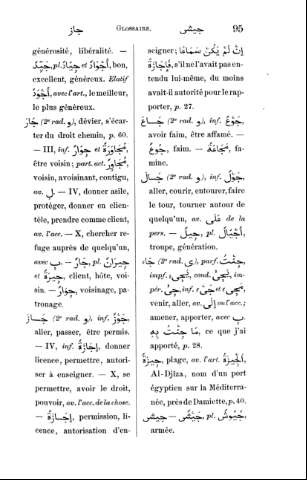 جاز GLOSSAIRE. جيشى 95
générosité, libéralité. —
جَيِّد, pl. جِيَاد et أَجْوَاد, bon,
excellent, généreux. Elatif
أَجْوَد, avec l'art., le meilleur,
le plus généreux.
جَارَ (2e rad. و), dévier, s'écar-
ter du droit chemin, p. 60.
— III, inf. جِوَار et مُجَاوَرَة,
être voisin; part. act. مُجَاوِر,
voisin, avoisinant, contigu,
av. ل. — IV, donner asile,
protéger, donner en clien-
tèle, prendre comme client,
av. l'acc. — X, chercher re-
fuge auprès de quelqu'un,
avec ب. — جَار, pl. جِيرَان
et جِيرَة, client, hôte, voi-
sin. — جِوَار, voisinage, pa-
tronage.
جَاز (2e rad. و), inf. جَوْز,
aller, passer, être permis.
— IV, inf. إِجَازَة, donner
licence, permettre, autori-
ser à enseigner. — X, se
permettre, avoir le droit,
pouvoir, av. l'acc. de la chose.
— إِجَازَة, permission, li-
cence, autorisation d'en-
seigner; إِنْ لَمْ يَكُنْ سَمَاعًا
فَإِجَازَة, s'il ne l'avait pas en-
tendu lui-même, du moins
avait-il autorité pour le rap-
porter, p. 27.
جَاع (2e rad. و), inf. جُوع,
avoir faim, être affamé. —
جُوع, faim. — مَجَاعَة, fa-
mine.
جَال (2e rad. و), inf. جَوْل,
aller, courir, entourer, faire
le tour, tourner autour de
quelqu'un, av. عَلَى de la
pers. — جِيل, pl. أَجْيَال,
troupe, génération.
جَاء (2e rad. ى), parf. جِئْت,
impf. يَجِىء, cond. يَجِئ, im-
pér. جِئ, inf. جَىْء et مَجِىء,
venir, aller, av. إِلَى ou l'acc.;
amener, apporter, avec ب,
مَا جِئْتَ بِهِ, ce que j'ai
apporté, p. 28.
جِيزَة, plage, av. l'art. الجِيزَة,
Al-Djîza, nom d'un port
égyptien sur la Méditerra-
née, près de Damiette, p. 40.
جَيْش — جَيْشِى, pl. جُيُوش,
armée.